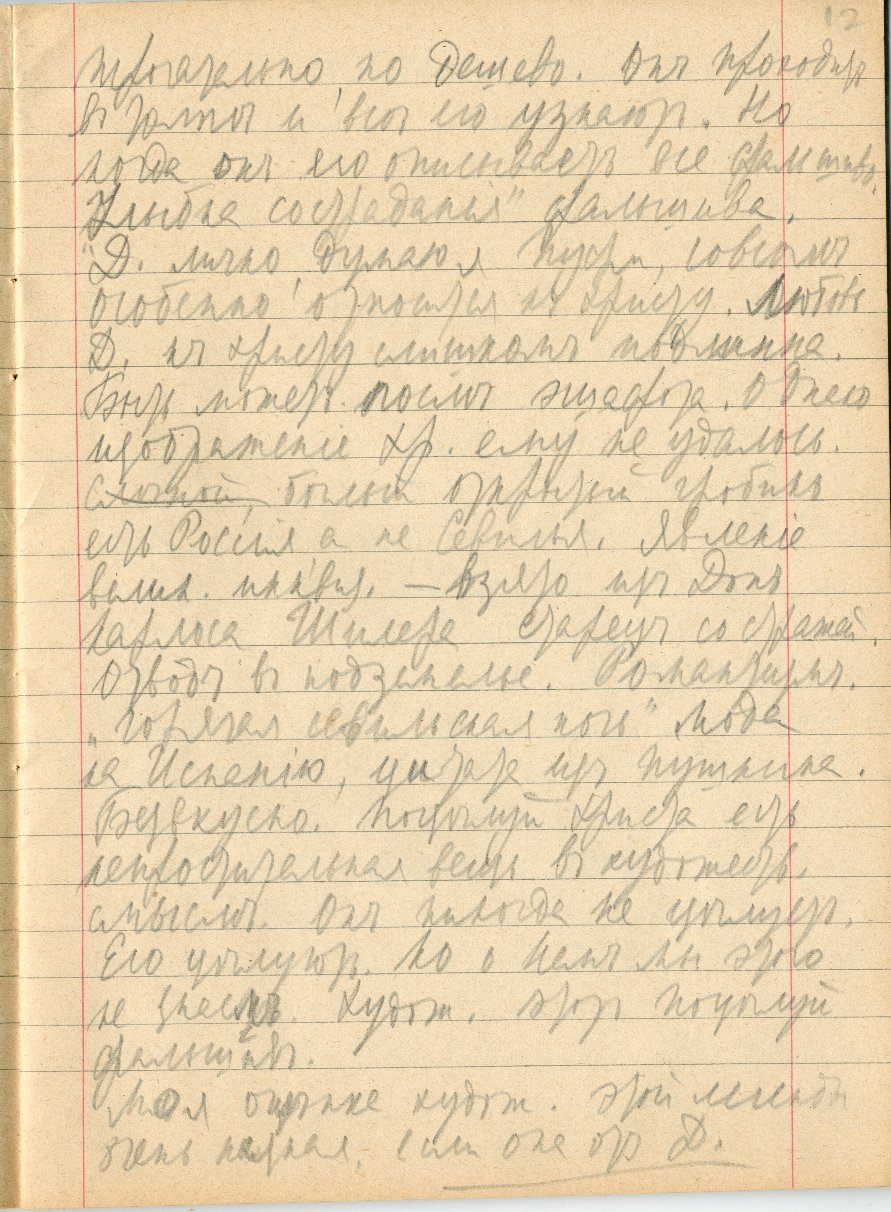 12
трогательно но дешево. Онъ проходитъ
въ толпѣ и всѣ его узнаютъ. Но
когда онъ его описываетъ все фальшиво.
"Улыбка состраданія" фальшива.
Д. лично думаю я пусти, совсѣмъ
особенно относится къ Христу. Любовь
Д. къ Христу слишкомъ подлинна.
Быть можетъ послѣ эшафота. Однако
изображеніе Хр. ему не удалось.
бѣлый открытый гробикъ
есть Россія а не Севилья. Явленіе
велик. инквиз. — взято изъ Донъ
Карлоса Шилера старецъ со стражей.
Отводъ въ подземелье. Романтизмъ.
„горячая севильская ночь" мода
на Испанію, цитата изъ Пушкина.
Безвкусно. Поцѣлуй Христа есть
непростительная вещь въ художеств.
смыслѣ. Онъ никогда не цѣлуетъ.
Его цѣлуютъ. Но о Немъ мы этого
не знаемъ. Худож. этотъ поцѣлуй
фальшивъ.
Моя оцѣнка худож. этой легенды
очень низкая, если она отъ Д.